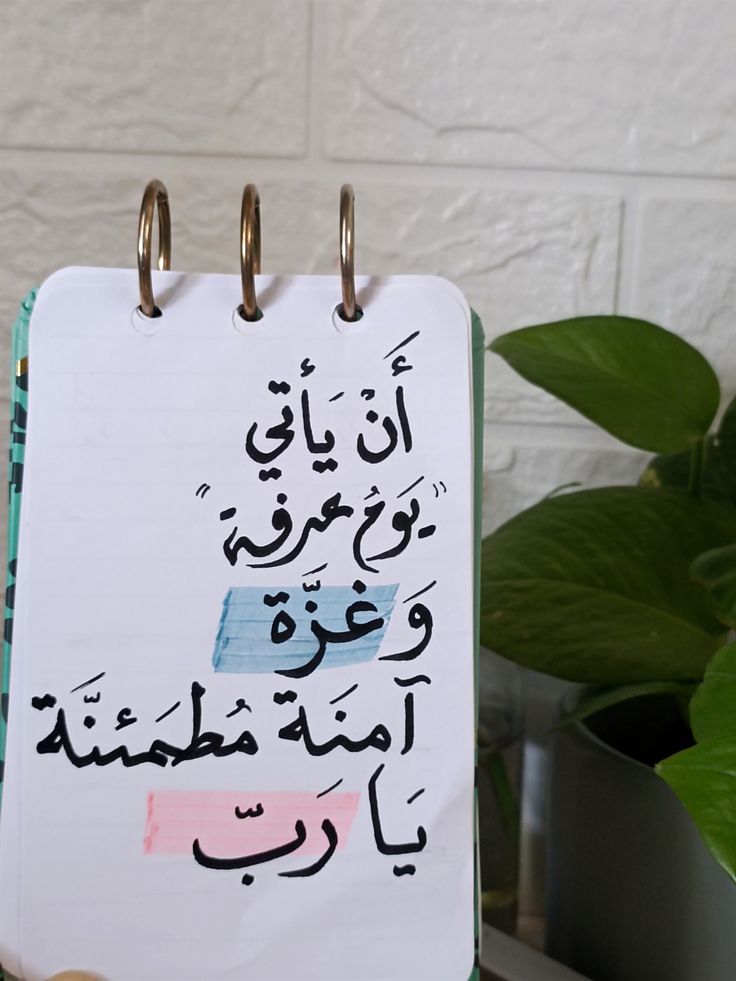 أَنْ يَأتي
"يَومُ عرفة"
وَ غزَّة
آمنَة مُطمَئنَّة
يَا رَبّ